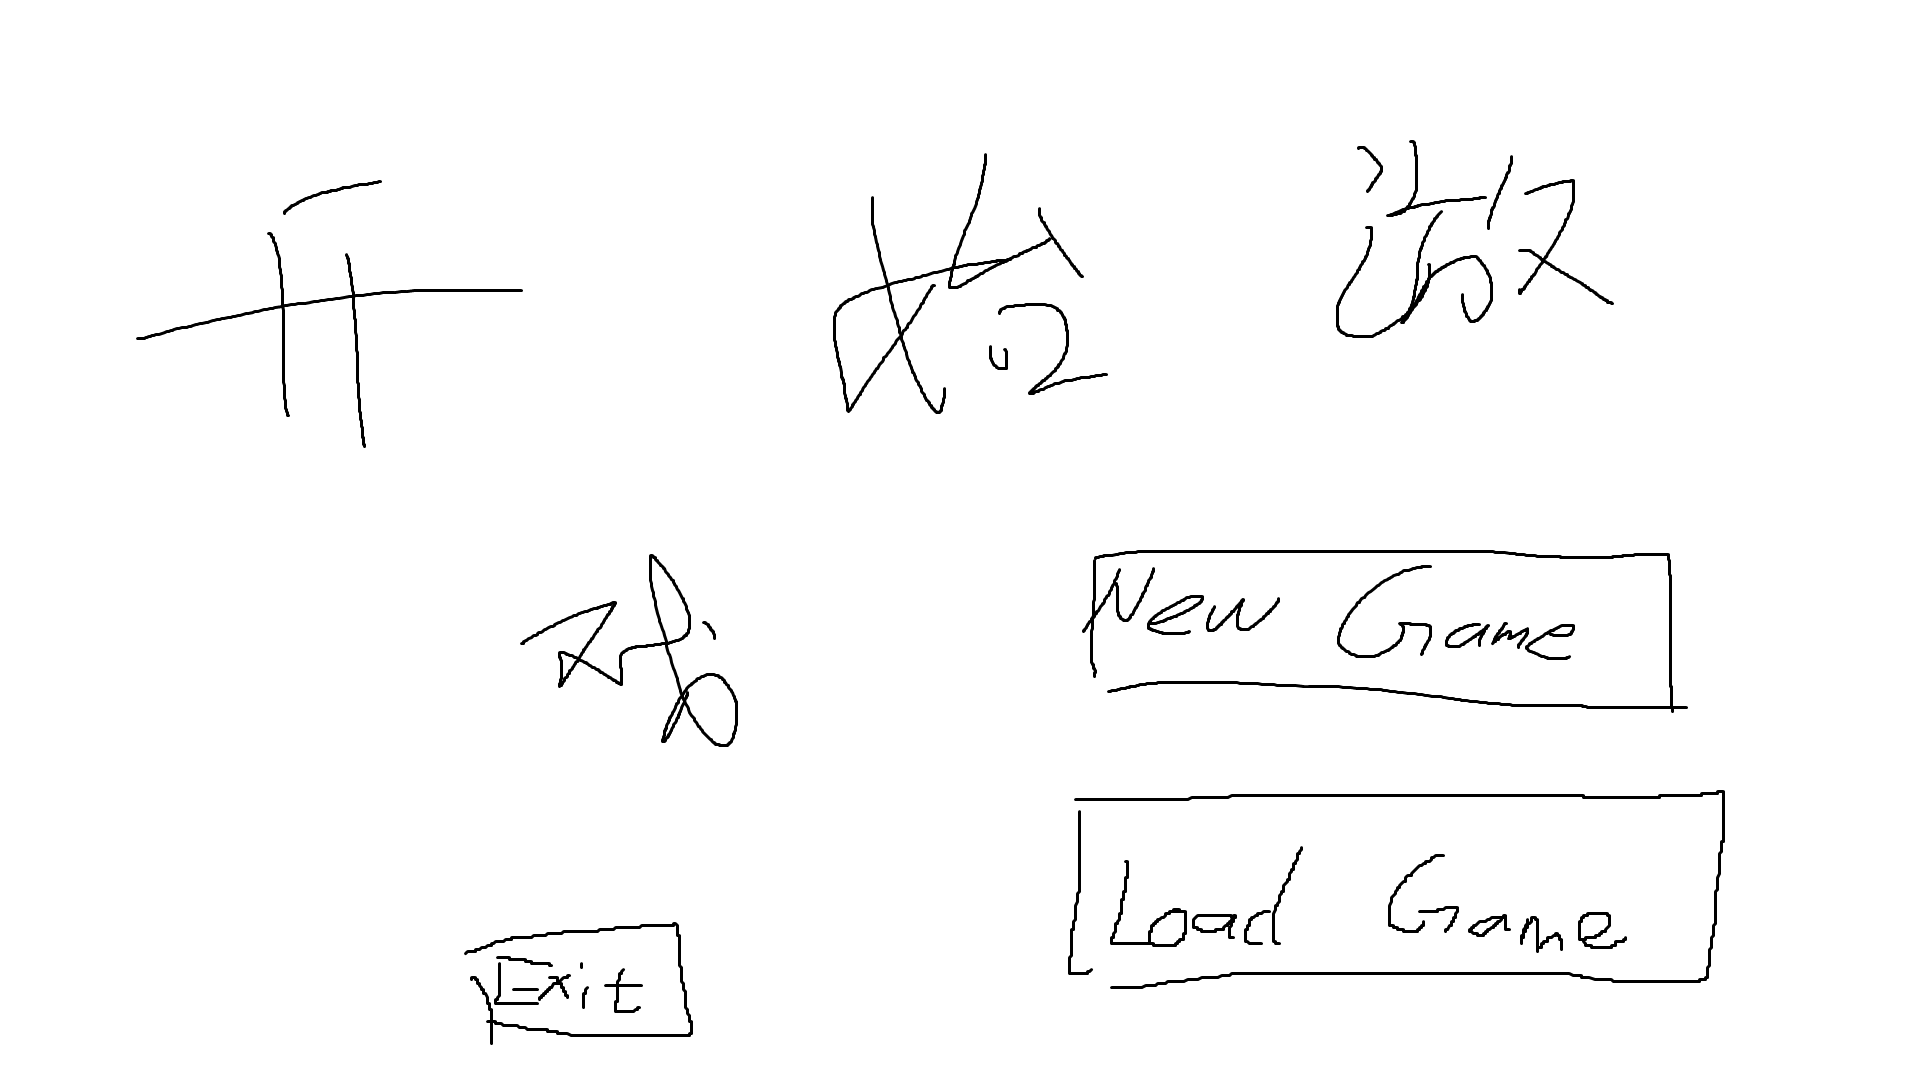 开始游
戏
New Game
Load Game
Exit